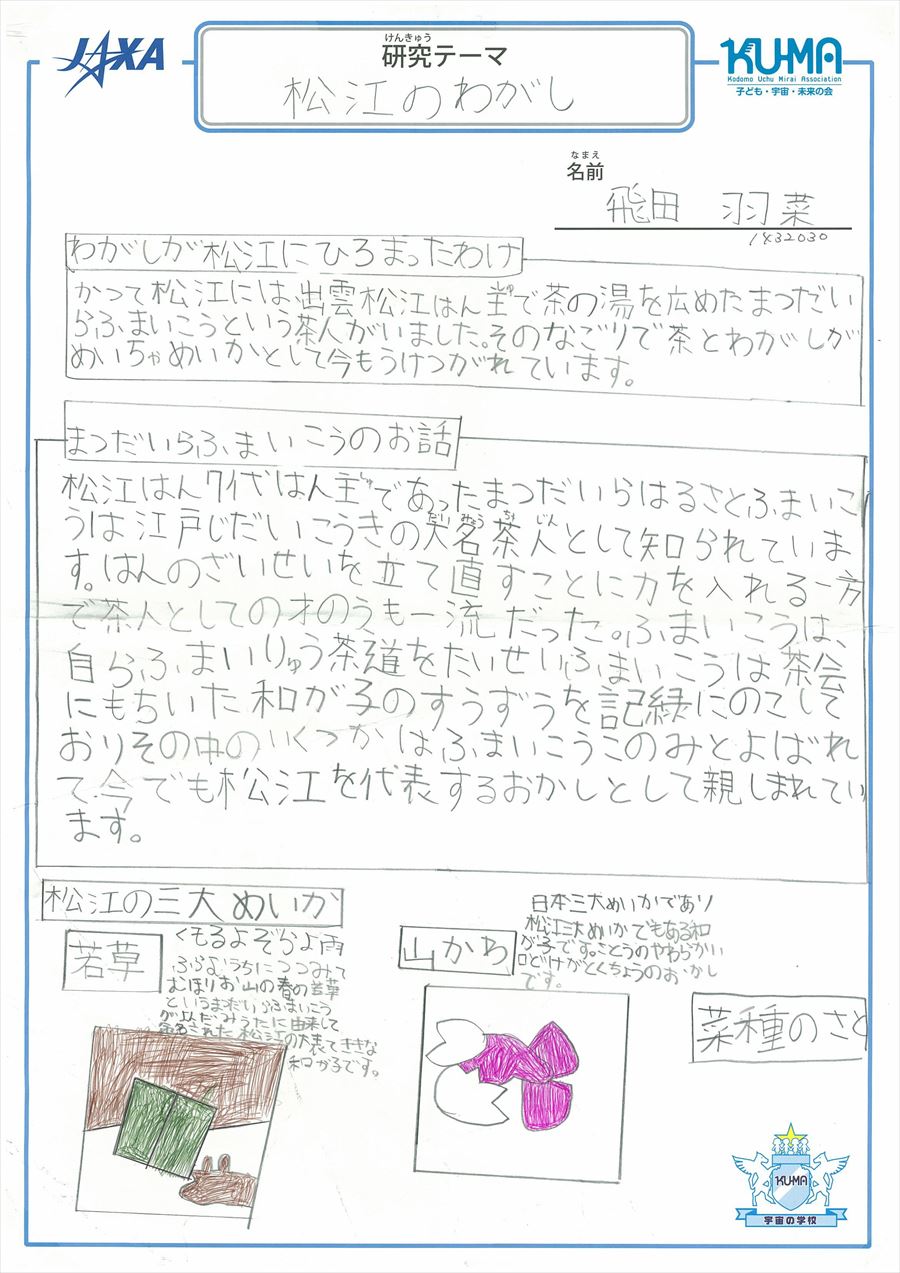 JAXA
けんきゅう
研究テーマ
松江のわがし
KUMA
Kodomo Uchu Mirai Association
子ども・宇宙・未来の会
なまえ
名前
飛田 羽菜
1432030
わがしが松江にひろまったわけ
かつて松江には出雲松江はん主で茶の湯を広めたまつだい
らふまいこうという茶人がいました。そのなごりで茶とわがしが
めいちゃめいかとして今もうけつがれています。
まつだいらふまいこうのお話
松江はん7代はん主であったまつだいらはるさとふまいこ
うは江戸じだいこうきの大名茶人として知られていま
す。はんのざいせいを立て直すことに力を入れる一方
で茶人としてのオのうも一流だった。ふまいこうは、
自らふまいりゅう茶道をたいせいふまいこうは茶会
にもちいた和が子のすうずうを記緑にのこして
おりその中のいくつかはふまいこうこのみとよばれ
て今でも松江を代表するおかしとして親しまれてい
ます。
松江の三大めいか
若草
くもるよぞらよ雨
ふらぬうちにつつみて
むほりお山の春の若草
というまだいらふまいこう
がよんだみうたに由来して
された松江の代表てききな
和が子です。
山かわ
日本三大めいかであり
松江三大めいかでもある和
が子です。ことうのやわらかい
口どけがとくちょうのおかし
です。
菜種のさと
KUMA
宇宙の学校